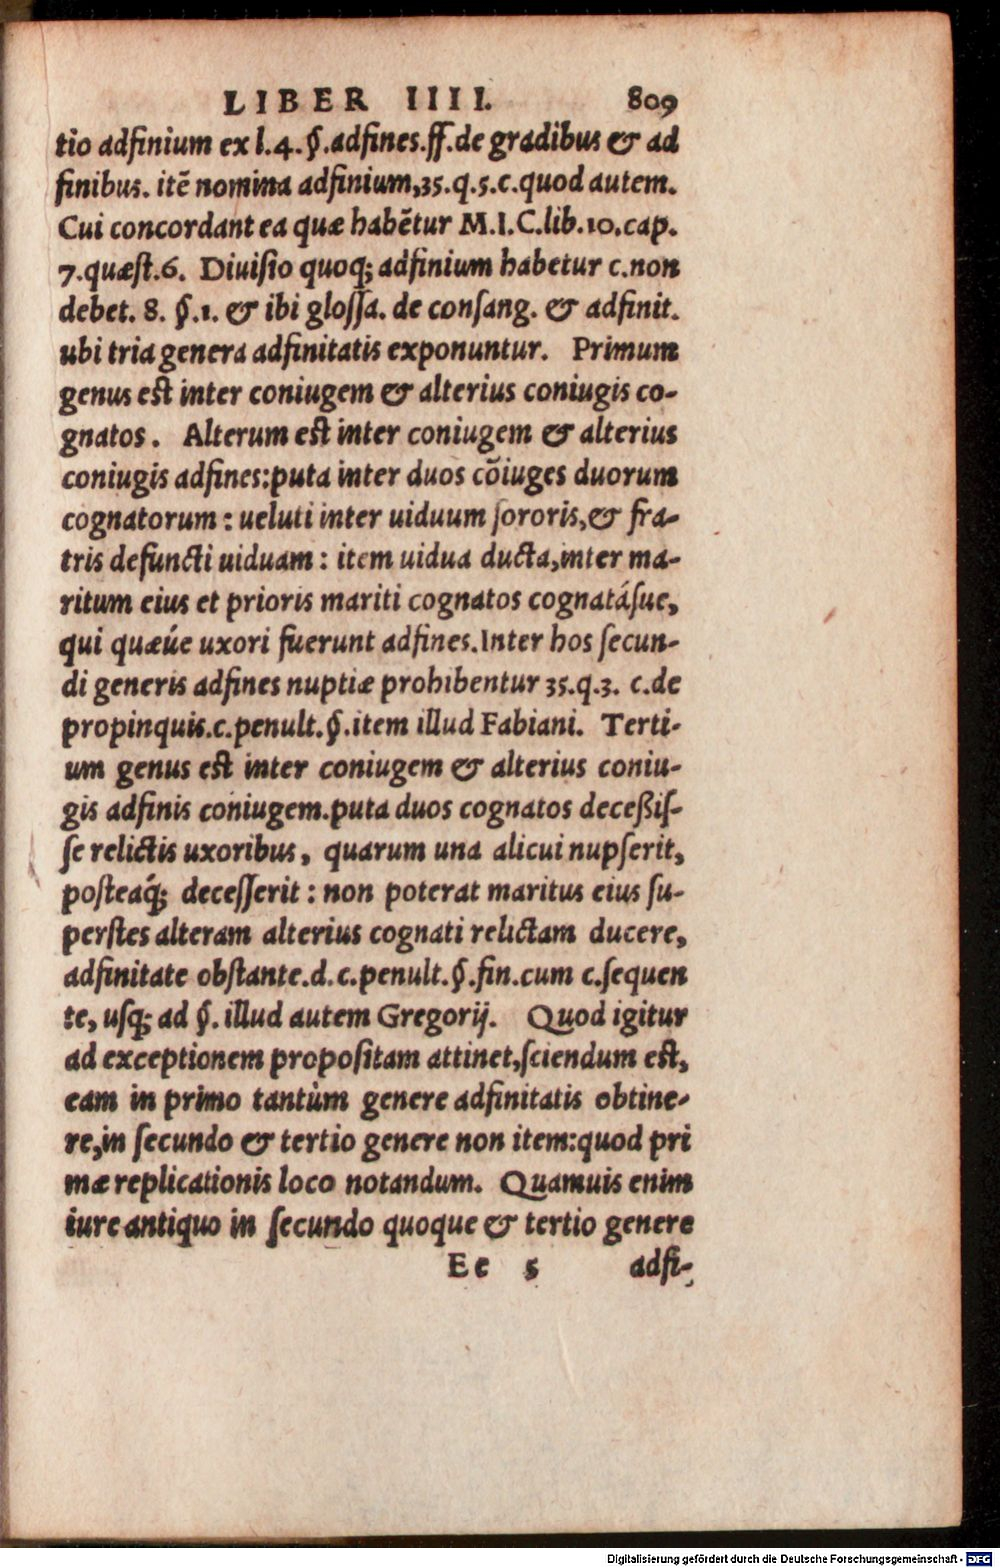 LIBER IIII. 809
tio adfinium ex l.4.§.adfines.ff.de gradibus & ad
finibus. itē nomina adfinium,35.q.5.c.quod autem.
Cui concordant ea quæ habētur M.I.C.lib.10.cap.
7.quæst.6. Diuisio quoq; adfinium habetur c.non
debet. 8. §.1. & ibi glossa. de consang. & adfinit.
ubi tria genera adfinitatis exponuntur. Primum
genus est inter coniugem & alterius coniugis co-
gnatos. Alterum est inter coniugem & alterius
coniugis adfines:puta inter duos cōiuges duorum
cognatorum : ueluti inter uiduum sororis,& fra-
tris defuncti uiduam : item uidua ducta,inter ma-
ritum eius et prioris mariti cognatos cognatásue,
qui quæúe uxori fuerunt adfines.Inter hos secun-
di generis adfines nuptiæ prohibentur 35.q.3. c.de
propinquis.c.penult.§.item illud Fabiani. Terti-
um genus est inter coniugem & alterius coniu-
gis adfinis coniugem.puta duos cognatos deceßis-
se relictis uxoribus, quarum una alicui nupserit,
posteaq́; decesserit : non poterat maritus eius su-
perstes alteram alterius cognati relictam ducere,
adfinitate obstante.d.c.penult.§.fin.cum c.sequen
te, usq; ad §. illud autem Gregorij. Quod igitur
ad exceptionem propositam attinet,sciendum est,
eam in primo tantùm genere adfinitatis obtine-
re,in secundo & tertio genere non item:quod pri
mæ replicationis loco notandum. Quamuis enim
iure antiquo in secundo quoque & tertio genere
Ee 5 adfi-
Digitalisierung gefördert durch die Deutsche Forschungsgemeinschaft - DFG